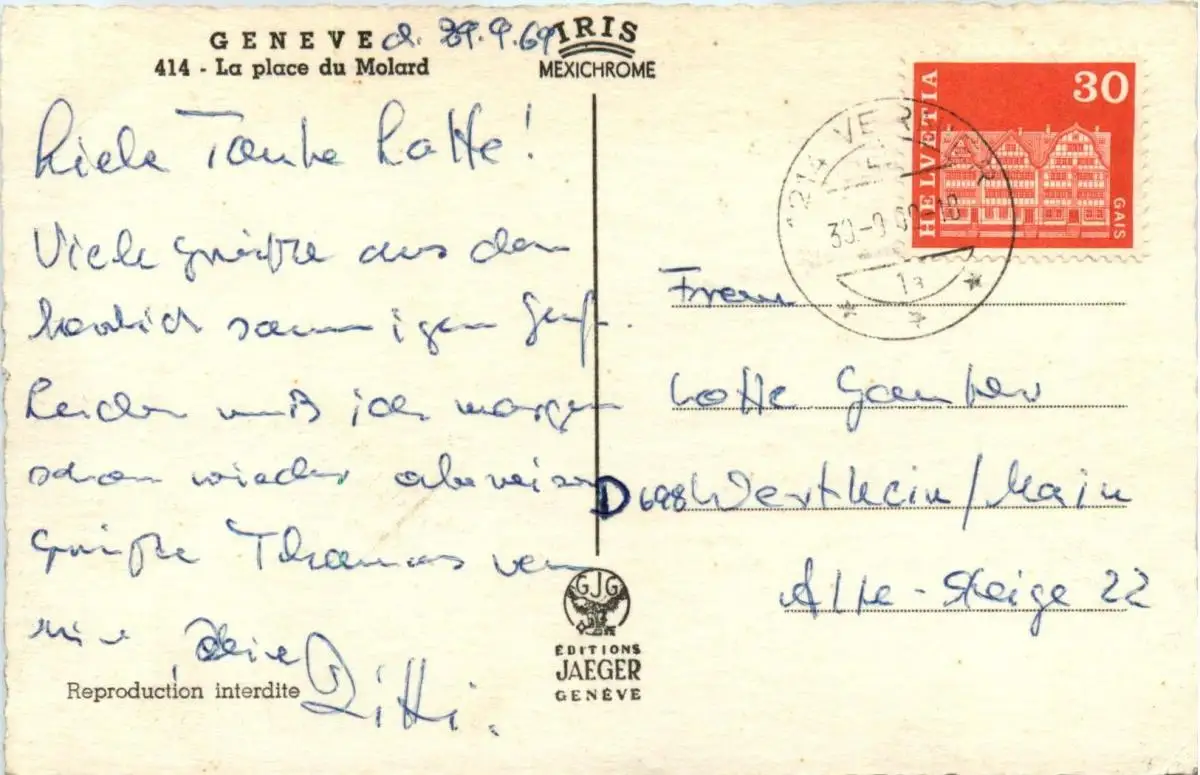 GENEVE d. 29.9.69
414 - La place du Molard
IRIS
MEXICHROME
Liebe Tante Lotte!
Viele Grüße aus dem
herrlich sonnigen Genf.
Leider muß ich morgen
schon wieder abreisen
Grüße Thomas von
mir, Deine
Gitti.
Reproduction interdite
GJG
ÉDITIONS
JAEGER
GENÈVE
HELVETIA
30
GAIS
1214
30.-9.69-18
1a
Frau
Lotte
D 698 Wertheim/Main
Alte-Steige 22